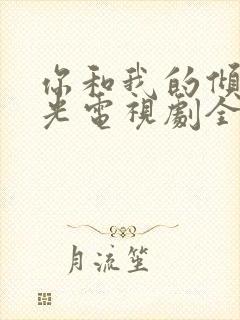 你和我的倾
光電視劇全
月流笙